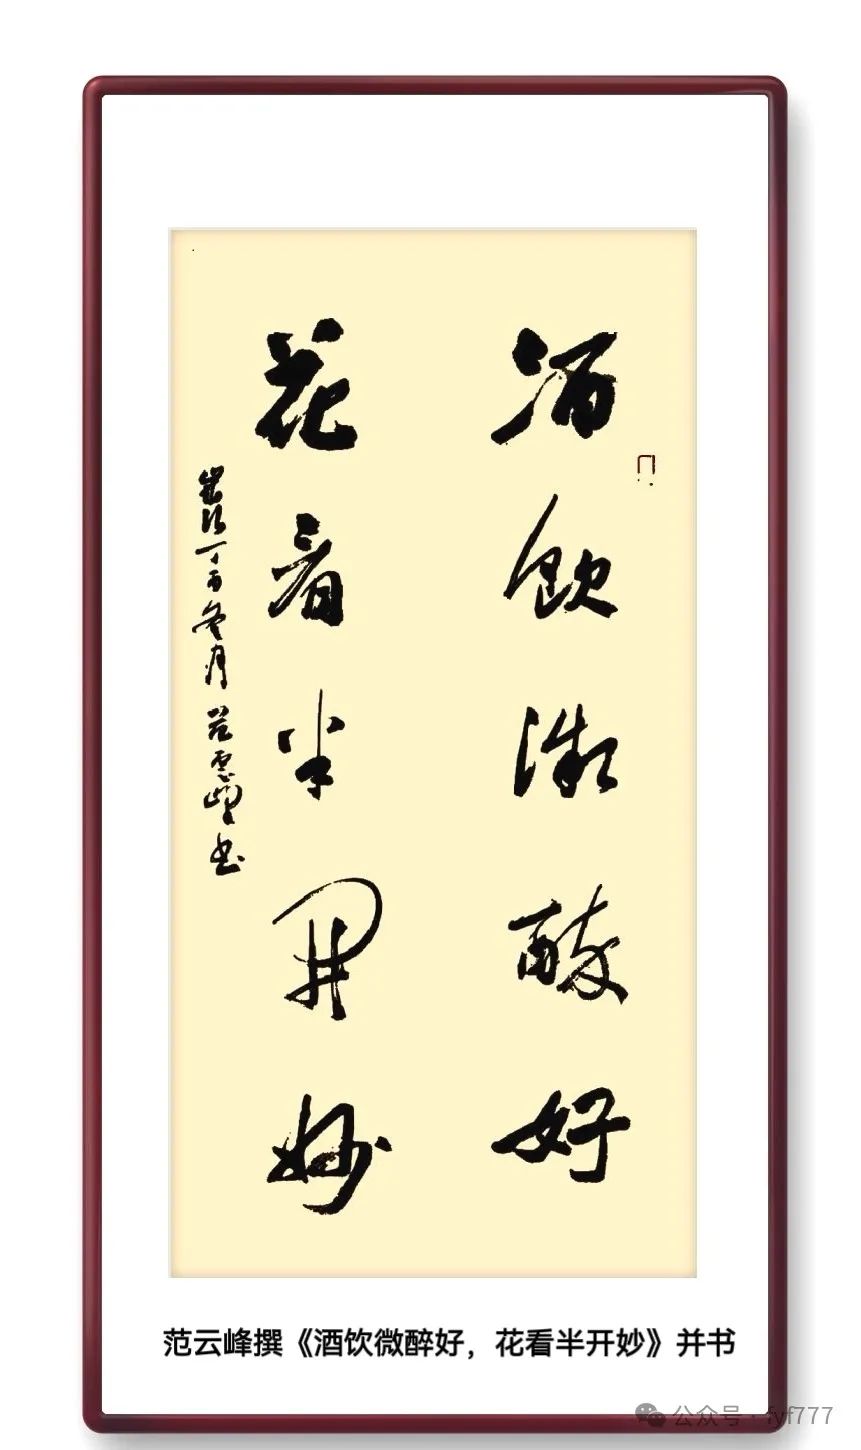 酒飲微醉好
花看半開妙
歲次丁酉冬月范雲峰书
范云峰撰《酒饮微醉好，花看半开妙》并书
公众号 · fyf777